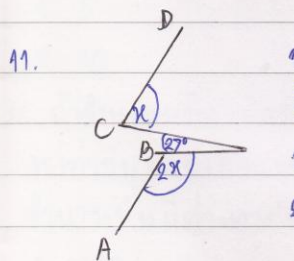 D
11.
x
C
27°
B
2x
A